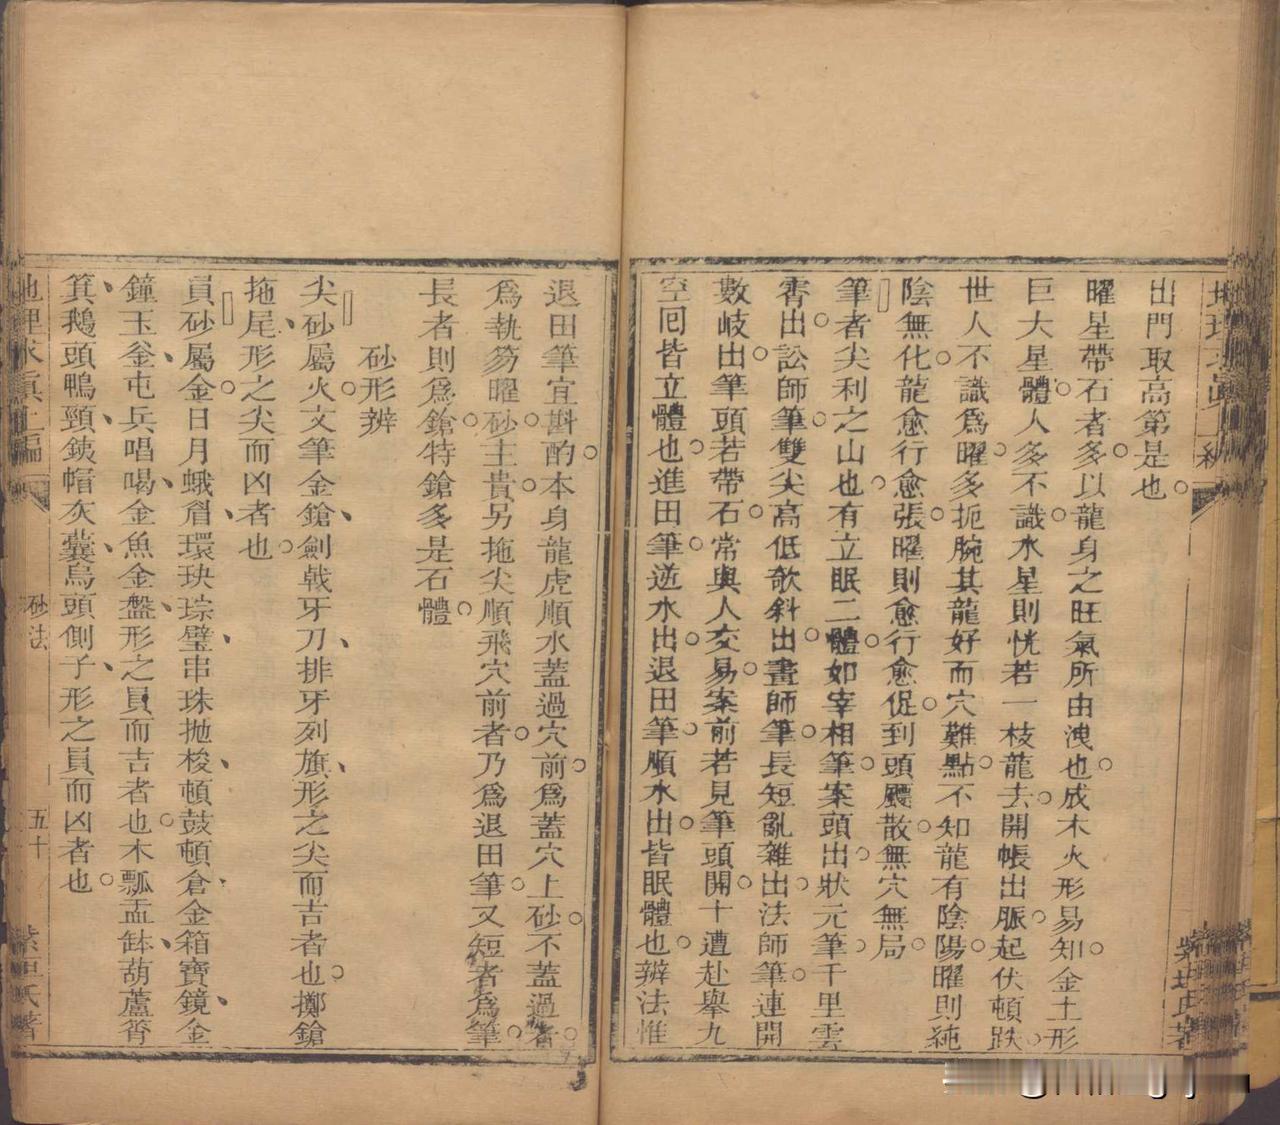 出門取高第是也
曜星帶石者多以龍身之旺氣所由洩也成木火形易知金土形
巨大星體人多不識水星則恍若一枝龍去開帳出脈起伏頓跌
世人不識爲曜多扼腕其龍好而穴難點不知龍有陰陽曜則純
陰無化龍愈行愈張曜則愈行愈促到頭飃散無穴無局
筆者尖利之山也有立眠二體如宰相筆案頭出狀元筆千里雲
霄出訟師筆雙尖高低欹斜出畫師筆長短亂雜出法師筆連開
數岐出筆頭若帶石常與人交易案前若見筆頭開十遭赴舉九
空囘皆立體也進田筆逆水出退田筆順水出皆眠體也辨法惟
退田筆宜斟酌本身龍虎順水蓋過穴前爲蓋穴上砂不蓋過者
爲執笏曜砂主貴另拖尖順飛穴前者乃爲退田筆又短者爲筆
長者則爲鎗特鎗多是石體
砂形辨
尖砂屬火文筆金鎗劍戟牙刀排牙列旗形之尖而吉者也擲鎗
拖尾形之尖而凶者也
員砂屬金日月蛾眉環玦琮璧串珠拋梭頓鼓頓倉金箱寶鏡金
鐘玉釜屯兵唱喝金魚金盤形之員而吉者也木瓢盂缽葫蘆筲
箕鵝頭鴨頸鋏帽灰囊烏頭側子形之員而凶者也
地理求眞上編
砂法
五十
紫垣氏著